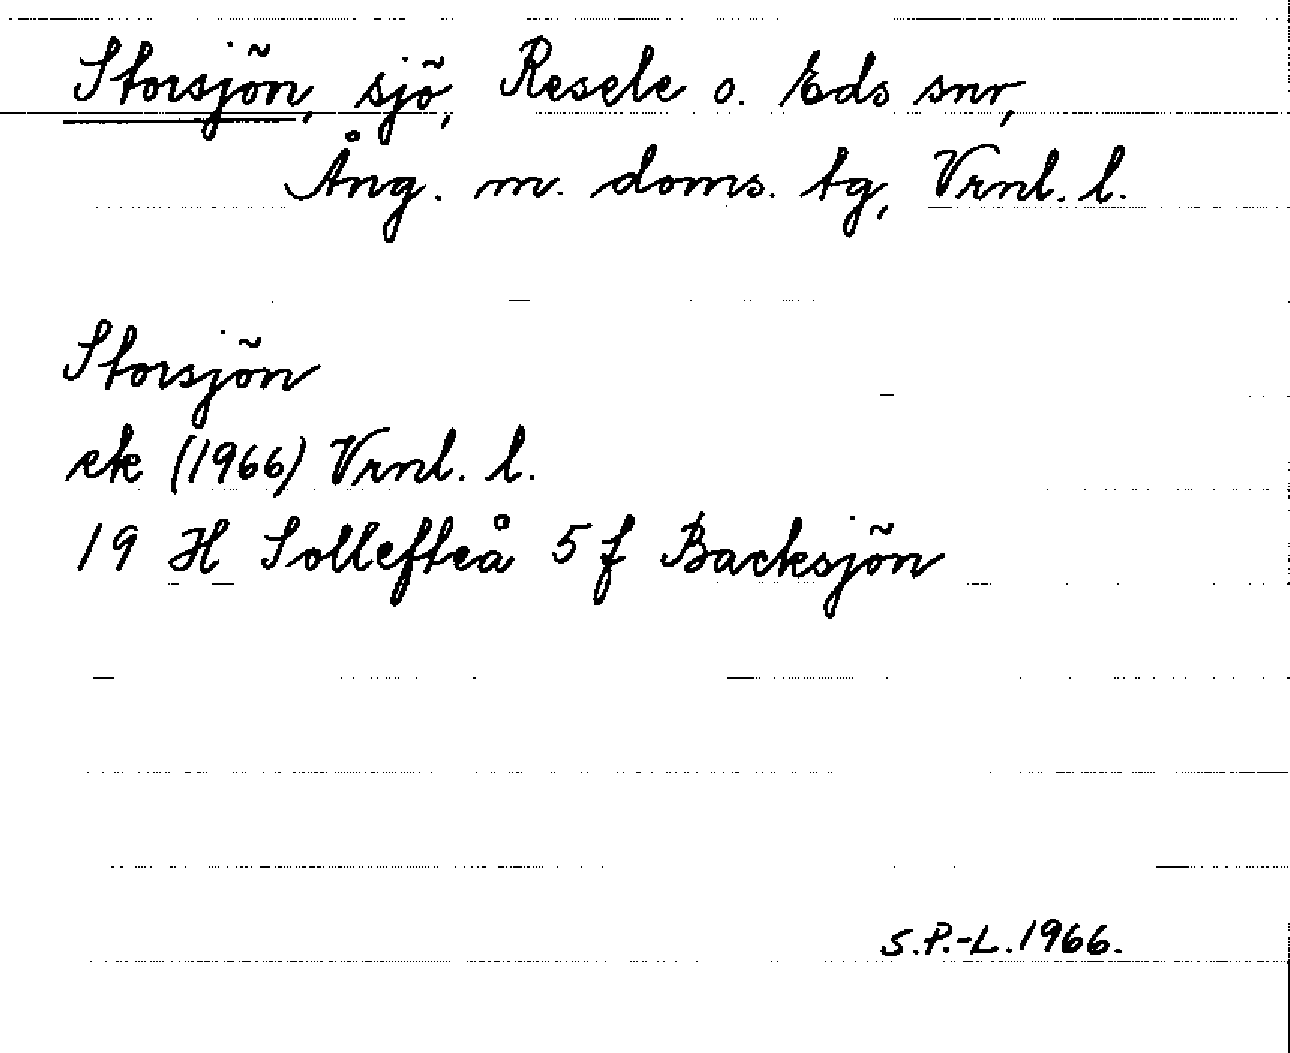 Storsjön, sjö, Resele o. Eds snr,
Ång. m. doms. tg, Vrnl. l.
Storsjön
ek (1966) Vrnl. l.
19 H Sollefteå 5 f Backsjön
S.P.-L. 1966.